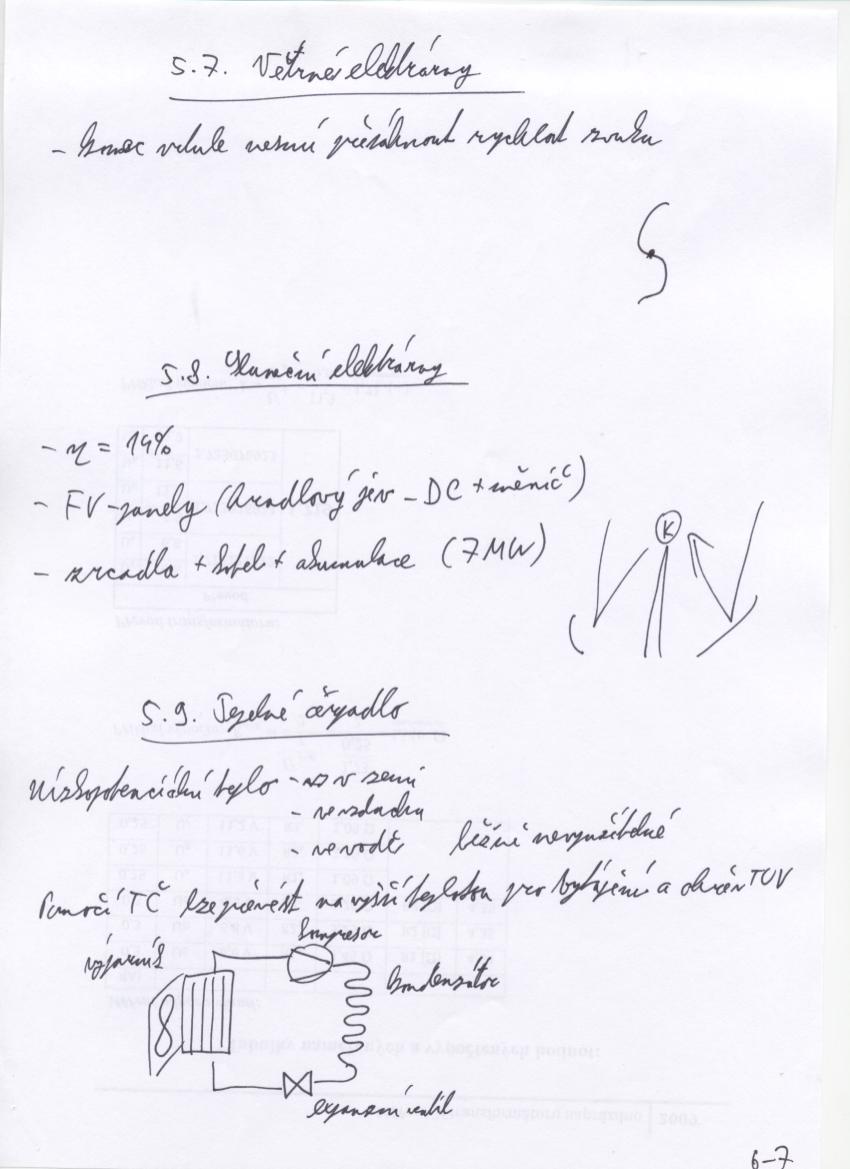 5.7. Větrné elektrárny
- konec vrtule nesmí přesáhnout rychlost zvuku
5.8. Sluneční elektrárny
- η = 14%
- FV-panely (hradlový jev - DC + měnič)
- zrcadla + kotel + akumulace (7MW)
K
5.9. Tepelné čerpadlo
Nízkopotenciální teplo - v zemi
- ve vzduchu
- ve vodě běžně nevyužitelné
Pomocí TČ lze převést na vyšší teplotu pro vytápění a ohřev TUV
kompresor
výparník
kondenzátor
expanzní ventil
6-7